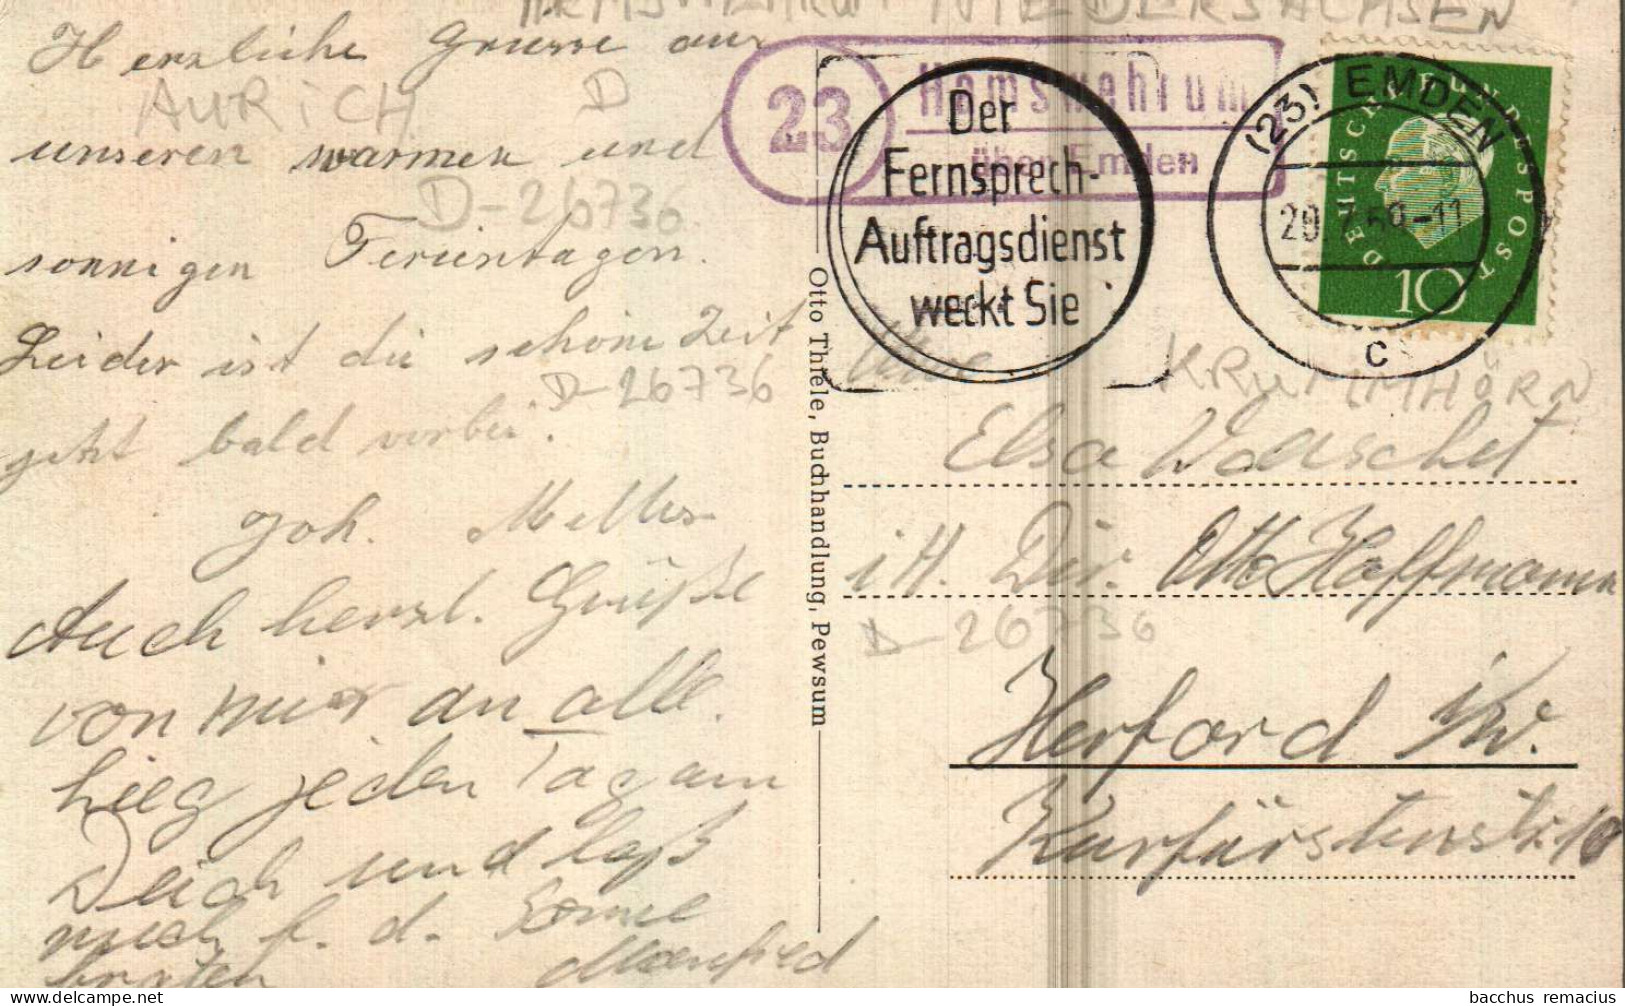 NIEDERSACHSEN
Herzliche Grüsse aus
AURICH D
unseren warmen und
D-26736
sonnigen Ferientagen.
Leider ist die schöne Zeit
D-26736
geht bald vorbei.
Joh.
Auch herzl. Grüße
von mir an alle.
Lieg jeden Tag am
Deich und laß
mich v. d. Sonne
braten Manfred
Otto Thiele, Buchhandlung, Pewsum
23
Hamswehrum
über Emden
Der
Fernsprech-
Auftragsdienst
weckt Sie
(23) EMDEN
20.7.59-11
c
DEUTSCHE BUNDESPOST
10
KRUMMHÖRN
Elsa
i H. Dir. Otto Hoffmann
D-26736
Herford i/W.
Kurfürstenstr. 10
bacchus remacius